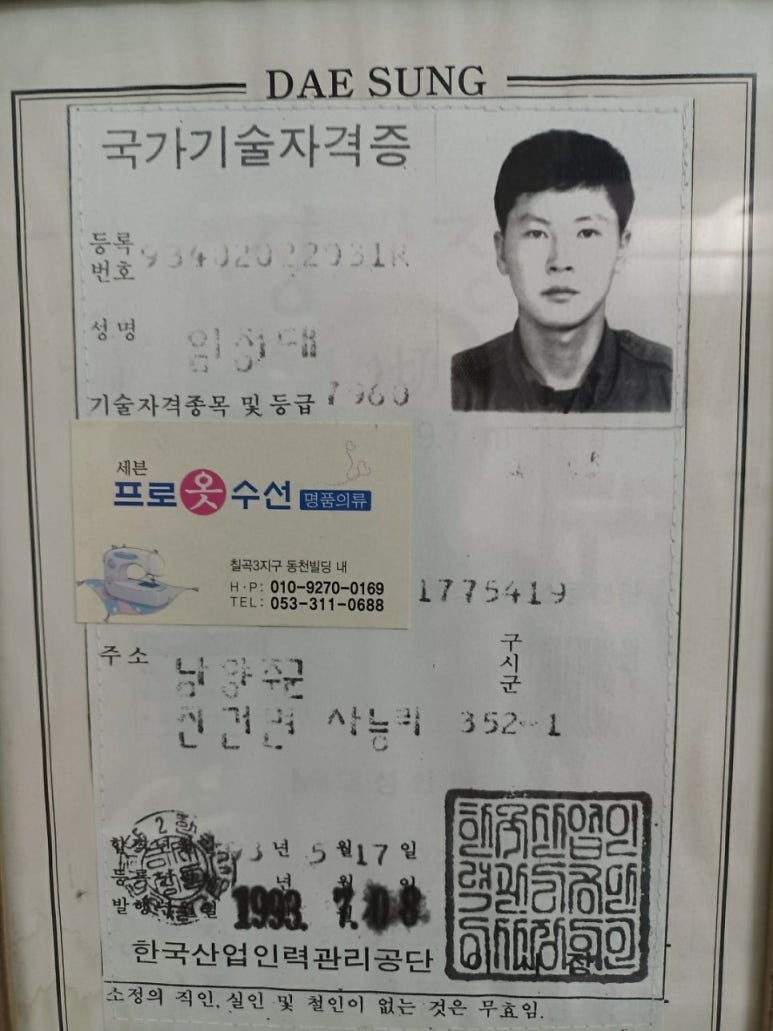 DAE SUNG
국가기술자격증
등록
번호 93402022031R
성명 임성대
기술자격종목 및 등급 7960
세븐
프로옷수선 명품의류
칠곡3지구 동천빌딩 내
H·P: 010-9270-0169
TEL: 053-311-0688
1775419
주소
구
시
군
남양주군
진건면 사능리 352-1
3년 5월 17일
년 월 일
1993. 7. 08
한국산업인력관리공단
이 사 장
소정의 직인, 실인 및 철인이 없는 것은 무효임.